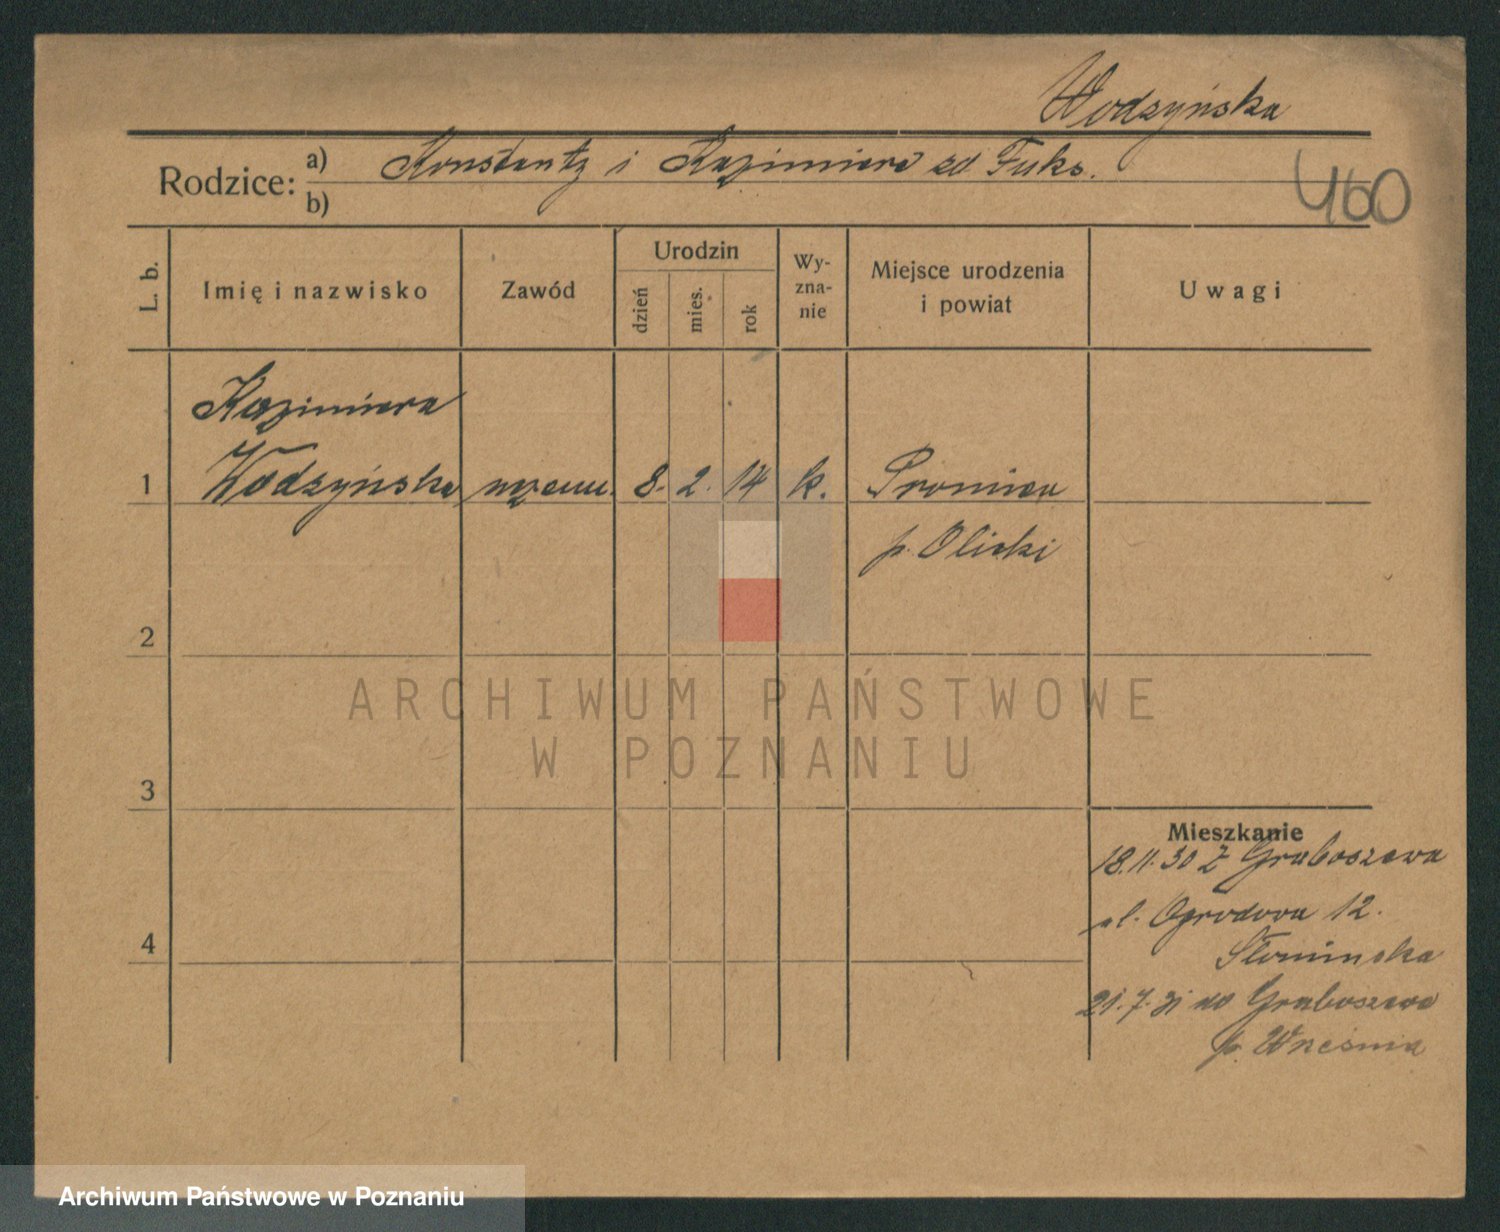 Wodzyńska
Rodzice: a) Konstanty i Kazimiera zd Fuks.
b)
460
L. b.
Imię i nazwisko
Zawód
Urodzin
dzień
mies.
rok
Wy-
zna-
nie
Miejsce urodzenia
i powiat
Uwagi
Kazimiera
1 Wodzyńska 8. 2. 14 k.
p.
2
3
4
Mieszkanie
18.11.30 z Graboszewa
ul. Ogrodowa 12.
Słominska
21.7.31 do Graboszewa
p. Września
ARCHIWUM PAŃSTWOWE
W POZNANIU
Archiwum Państwowe w Poznaniu